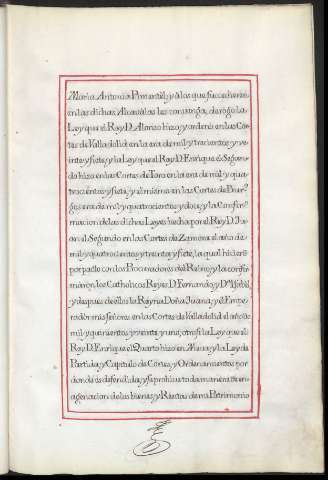 Maria Antonia Pimentel, y â los que succedieren
en las dichas Alcavâlas les convenga, derogo la
Ley que el Rey D. Alonso hizo y ordenò en las Cór-
tes de Valladolid en la era de mil y trecientos y ve-
inte y siete, y la Ley que el Rey D. Enrique el Segun-
do hizo en las Córtes de Toro en la era de mil y qua-
trocientos y siete, y el mismo en las Cortes de Bur-
gos era de mil y quatrocientos y doce, y la Confir-
macion de las dichas Leyes hecha por el Rey D. Ju-
an el Segundo en las Córtes de Zamora el año de
mil y quatrocientos y treinta y siete, la qual hicieron
por pacto con los Procuradores del Reino, y la confir-
màron los Catholicos Reyes D. Fernando, y D.ª Isabel,
y despues de ellos la Reyna Doña Juana, y el Empe-
rador mis señores en las Cortes de Valladolid el año de
mil y quinientos y veinte y uno, otrosi la Ley que el
Rey D. Enrique el Quarto hizo en Mina, y la Ley de
Partida, y Capitulo de Córtes, y Ordenamientos por
donde es defendida, y se prohive toda manera de en-
agenacion de los bienes, y Rentas de mi Patrimonio